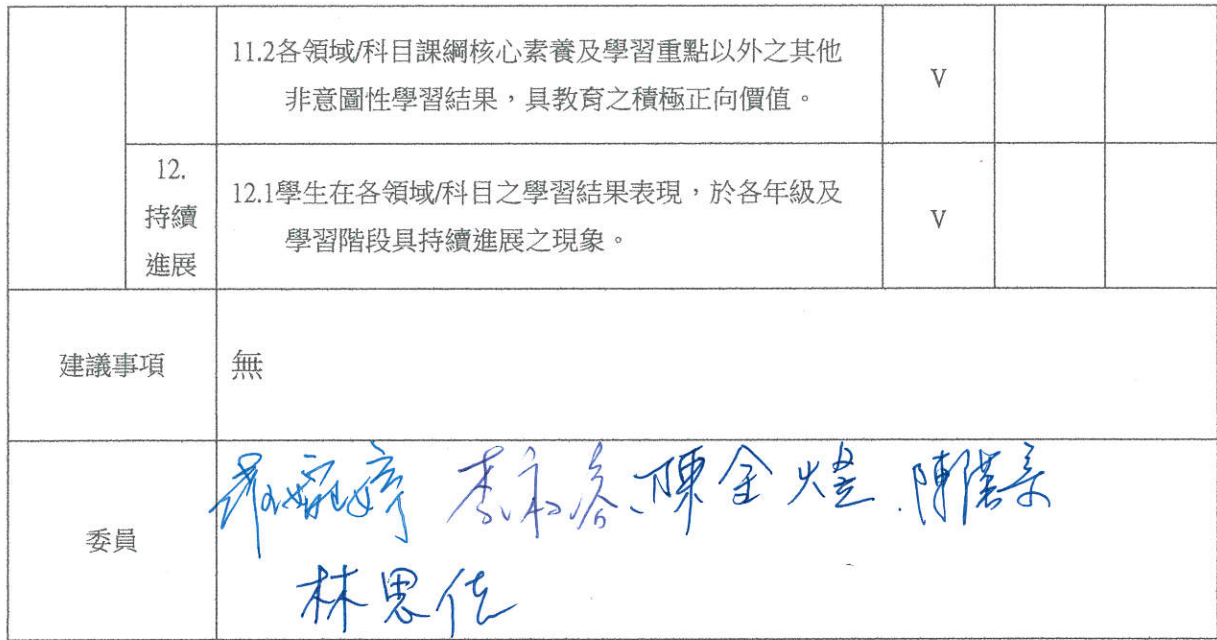 11.2各領域/科目課綱核心素養及學習重點以外之其他
非意圖性學習結果,具教育之積極正向價值。
V
12.
持續
進展
12.1學生在各領域/科目之學習結果表現,於各年級及
學習階段具持續進展之現象。
V
建議事項
無
委員
陳金
林思